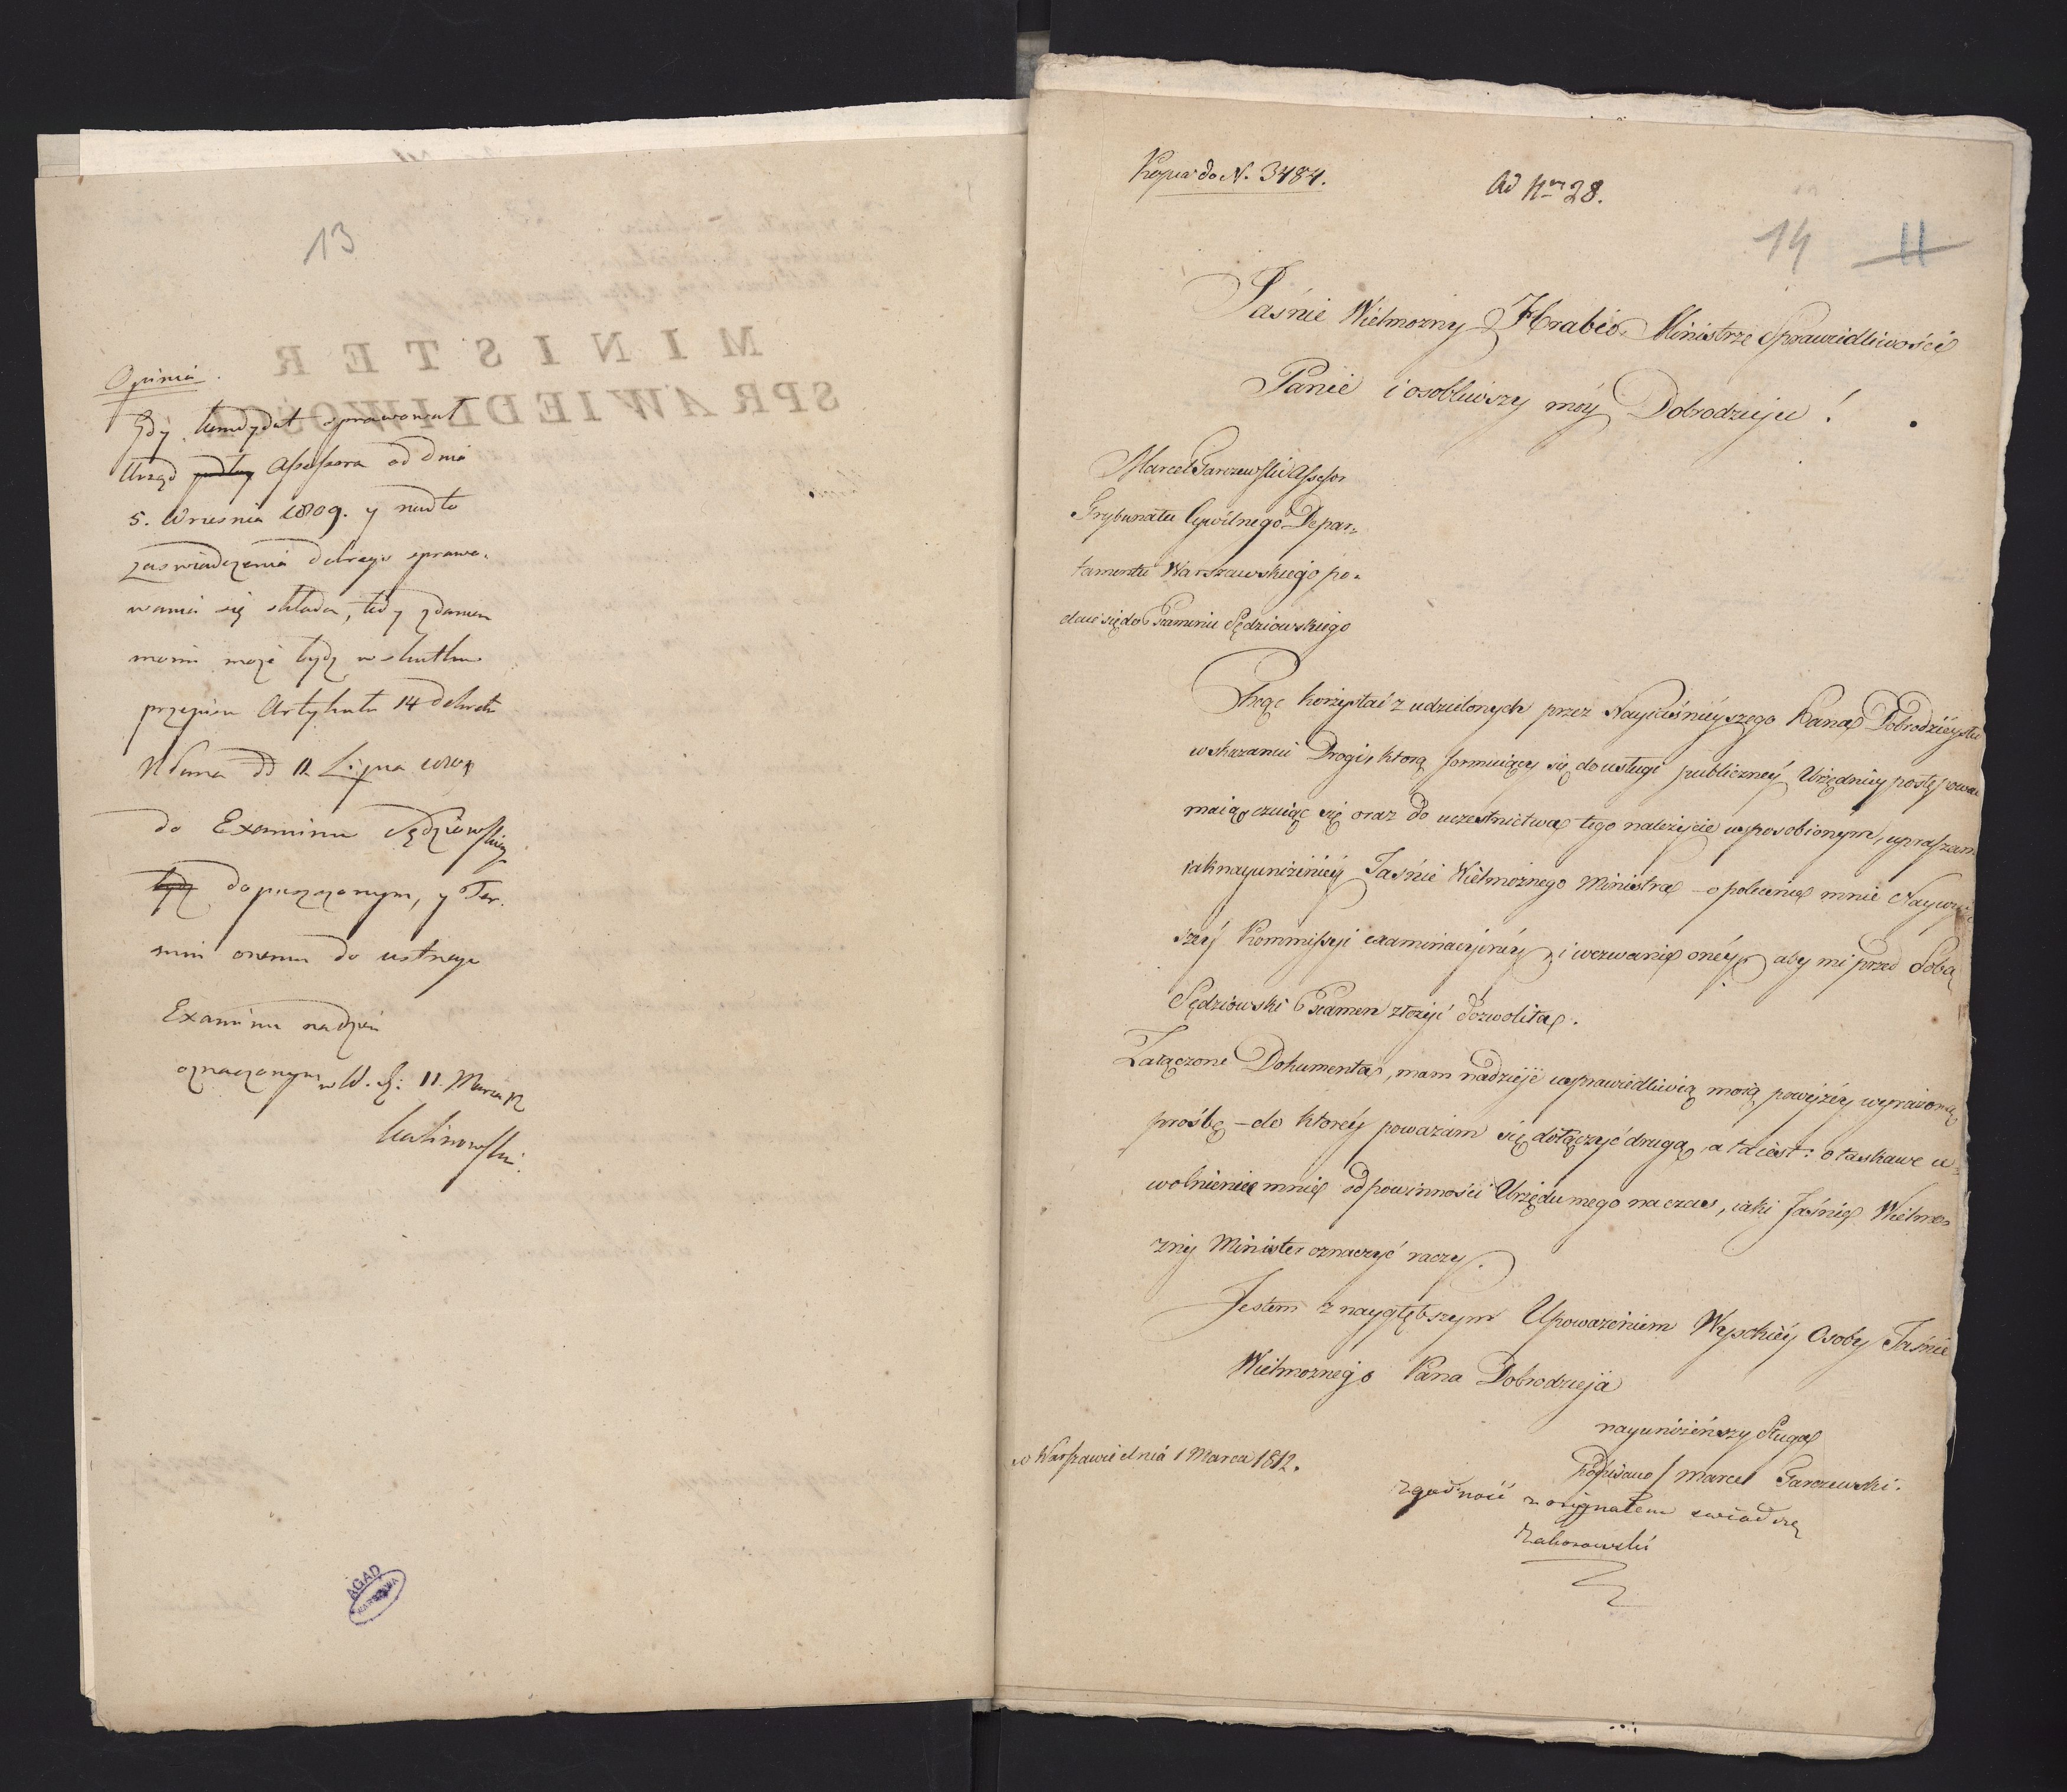 13
Opinia.
Gdy kandydat sprawował
Urząd podług Assessora od dnia
5. Wrzesnia 1809. y nadto
zaswiadczenia dobrego sprawo-
wania się składa, tedy zdaniem
moim może bydź w skutku
przepisu Artykułu 14 Dekretu
dd 11 Lipca
do Examinu Sędziowskiego
bydź dopuszczonym, y Ter-
min onemu do ustnego
Examinu na dzień
oznaczonym w W. d: 11. Marca 12
Kalinowski.
AGAD
WARSZAWA
Kopia do N. 3484.
Ad Nrm 28.
14 11
Jaśnie Wielmozny Hrabio Ministrze Sprawiedliwości
Panie i osobliwszy moy Dobrodzieju!
Marcel Garczewski Assessor
Trybunału Cywilnego Depar-
tamentu Warszawskiego po-
daie się do Examinu Sędziowskiego
Chcąc korzystać z udzielonych przez Nayiaśnieyszego Pana Dobrodzieystw
wskazaniu Drogi, którą formuiący się do usługi publiczney Urzędnicy postępować
maią, czuiąc się oraz do uczestnictwa tego należycie usposobionym, upraszam
iaknayuniżeniey Jaśnie Wielmożnego Ministra - o polecenie mnie Naywyż-
szey Kommissyi examinacyiney i wezwanie oney, aby mi przed Sobą
Sędziowski Examen złożyć dozwoliła.
Załączone Dokumenta, mam nadzieję usprawiedliwią moią powyżey wyrażoną
prośbę - do ktorey poważam się dołączyć drugą, a ta iest: o łaskawe u-
wolnienie mnie od powinności Urzędu mego na czas, iaki Jaśnie Wielmo-
żny Minister oznaczyć raczy.
Jestem z naygłębszym Upoważeniem Wysokiey Osoby Jaśnie
Wielmoznego Pana Dobrodzieja
nayuniżeńszy Sługa
podpisano / Marcel Garczewski.
w Warszawie dnia 1 Marca 1812.
zgodność z orygnałem swiadczę
Zaborowski